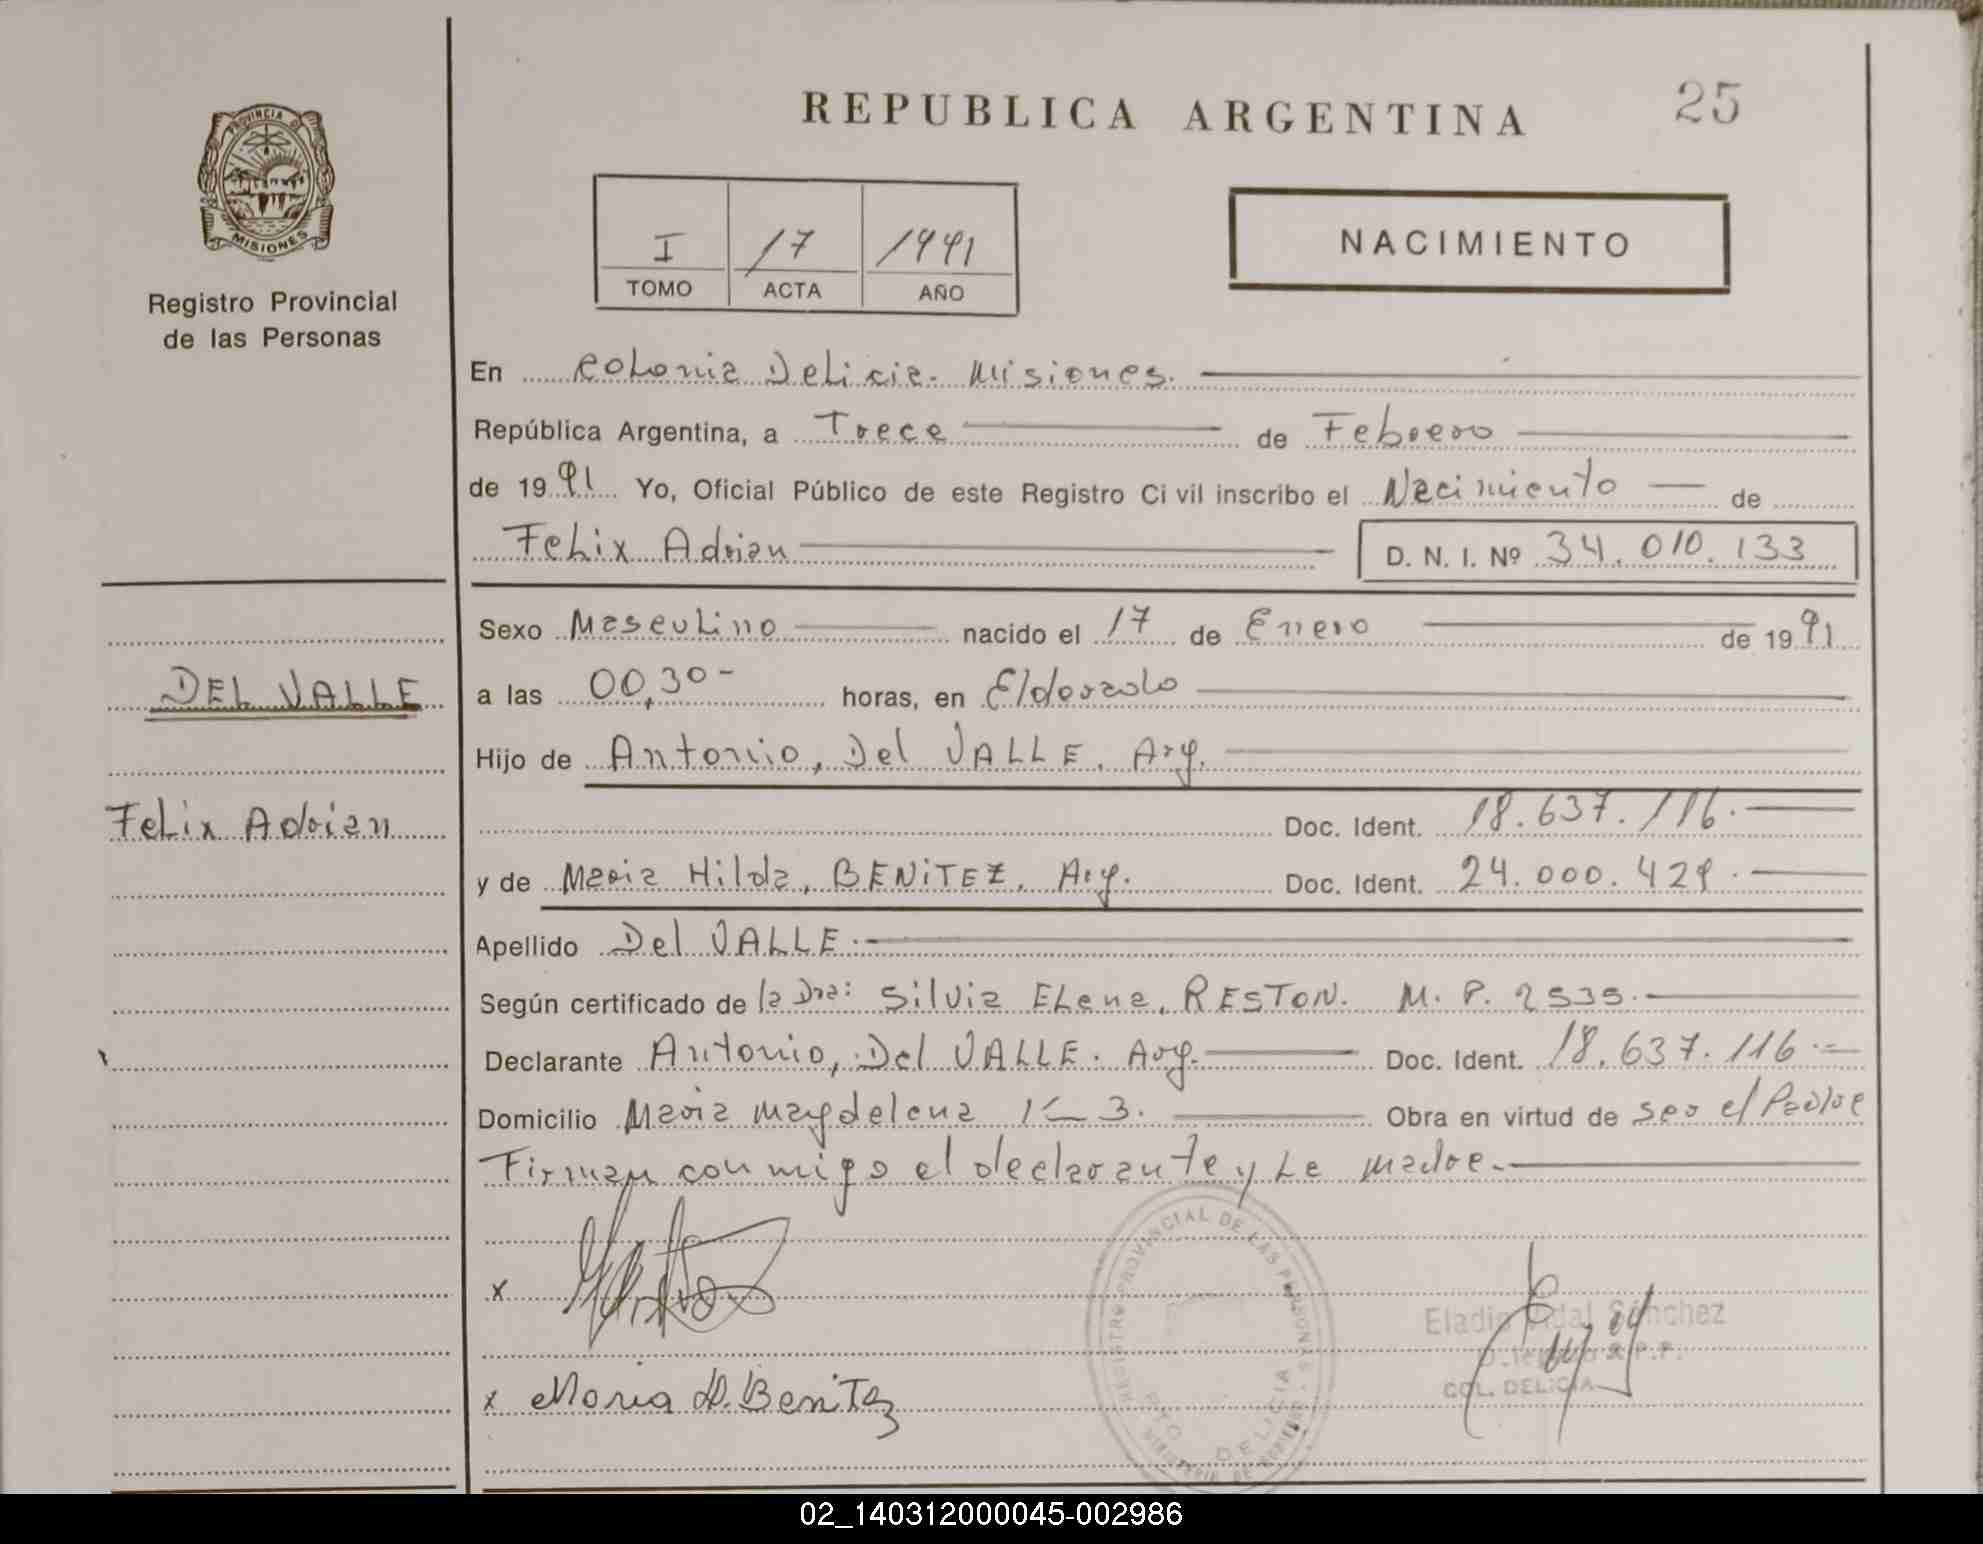 REPUBLICA ARGENTINA
25
PROVINCIA DE
MISIONES
Registro Provincial
de las Personas
I 17 1991
TOMO ACTA AÑO
NACIMIENTO
En Colonia Delicia. Misiones.
República Argentina, a Trece de Febrero
de 1991 Yo, Oficial Público de este Registro Ci vil inscribo el Nacimiento de
Felix Adrian D. N. I. Nº 34.010.133
Sexo Masculino nacido el 17 de Enero de 1991
DEL VALLE
a las 00,30- horas, en Eldorado
Hijo de Antonio, Del VALLE. Arg.
Felix Adrian
Doc. Ident. 18.637.116.
y de Maria Hilda, BENITEZ, Arg. Doc. Ident. 24.000.429.
Apellido Del VALLE.
Según certificado de la Dra: Silvia Elena, RESTON. M. P. 2535.
Declarante Antonio, Del VALLE. Arg. Doc. Ident. 18.637.116.
Domicilio Maria Magdalena K 3. Obra en virtud de ser el Padre
Firman conmigo el declarante y la madre.
x
x Maria H. Benitez
REGISTRO PROVINCIAL DE LAS PERSONAS
DELICIA
Eladio Vidal Sánchez
R.P.P.
COL. DELICIA
02_140312000045-002986